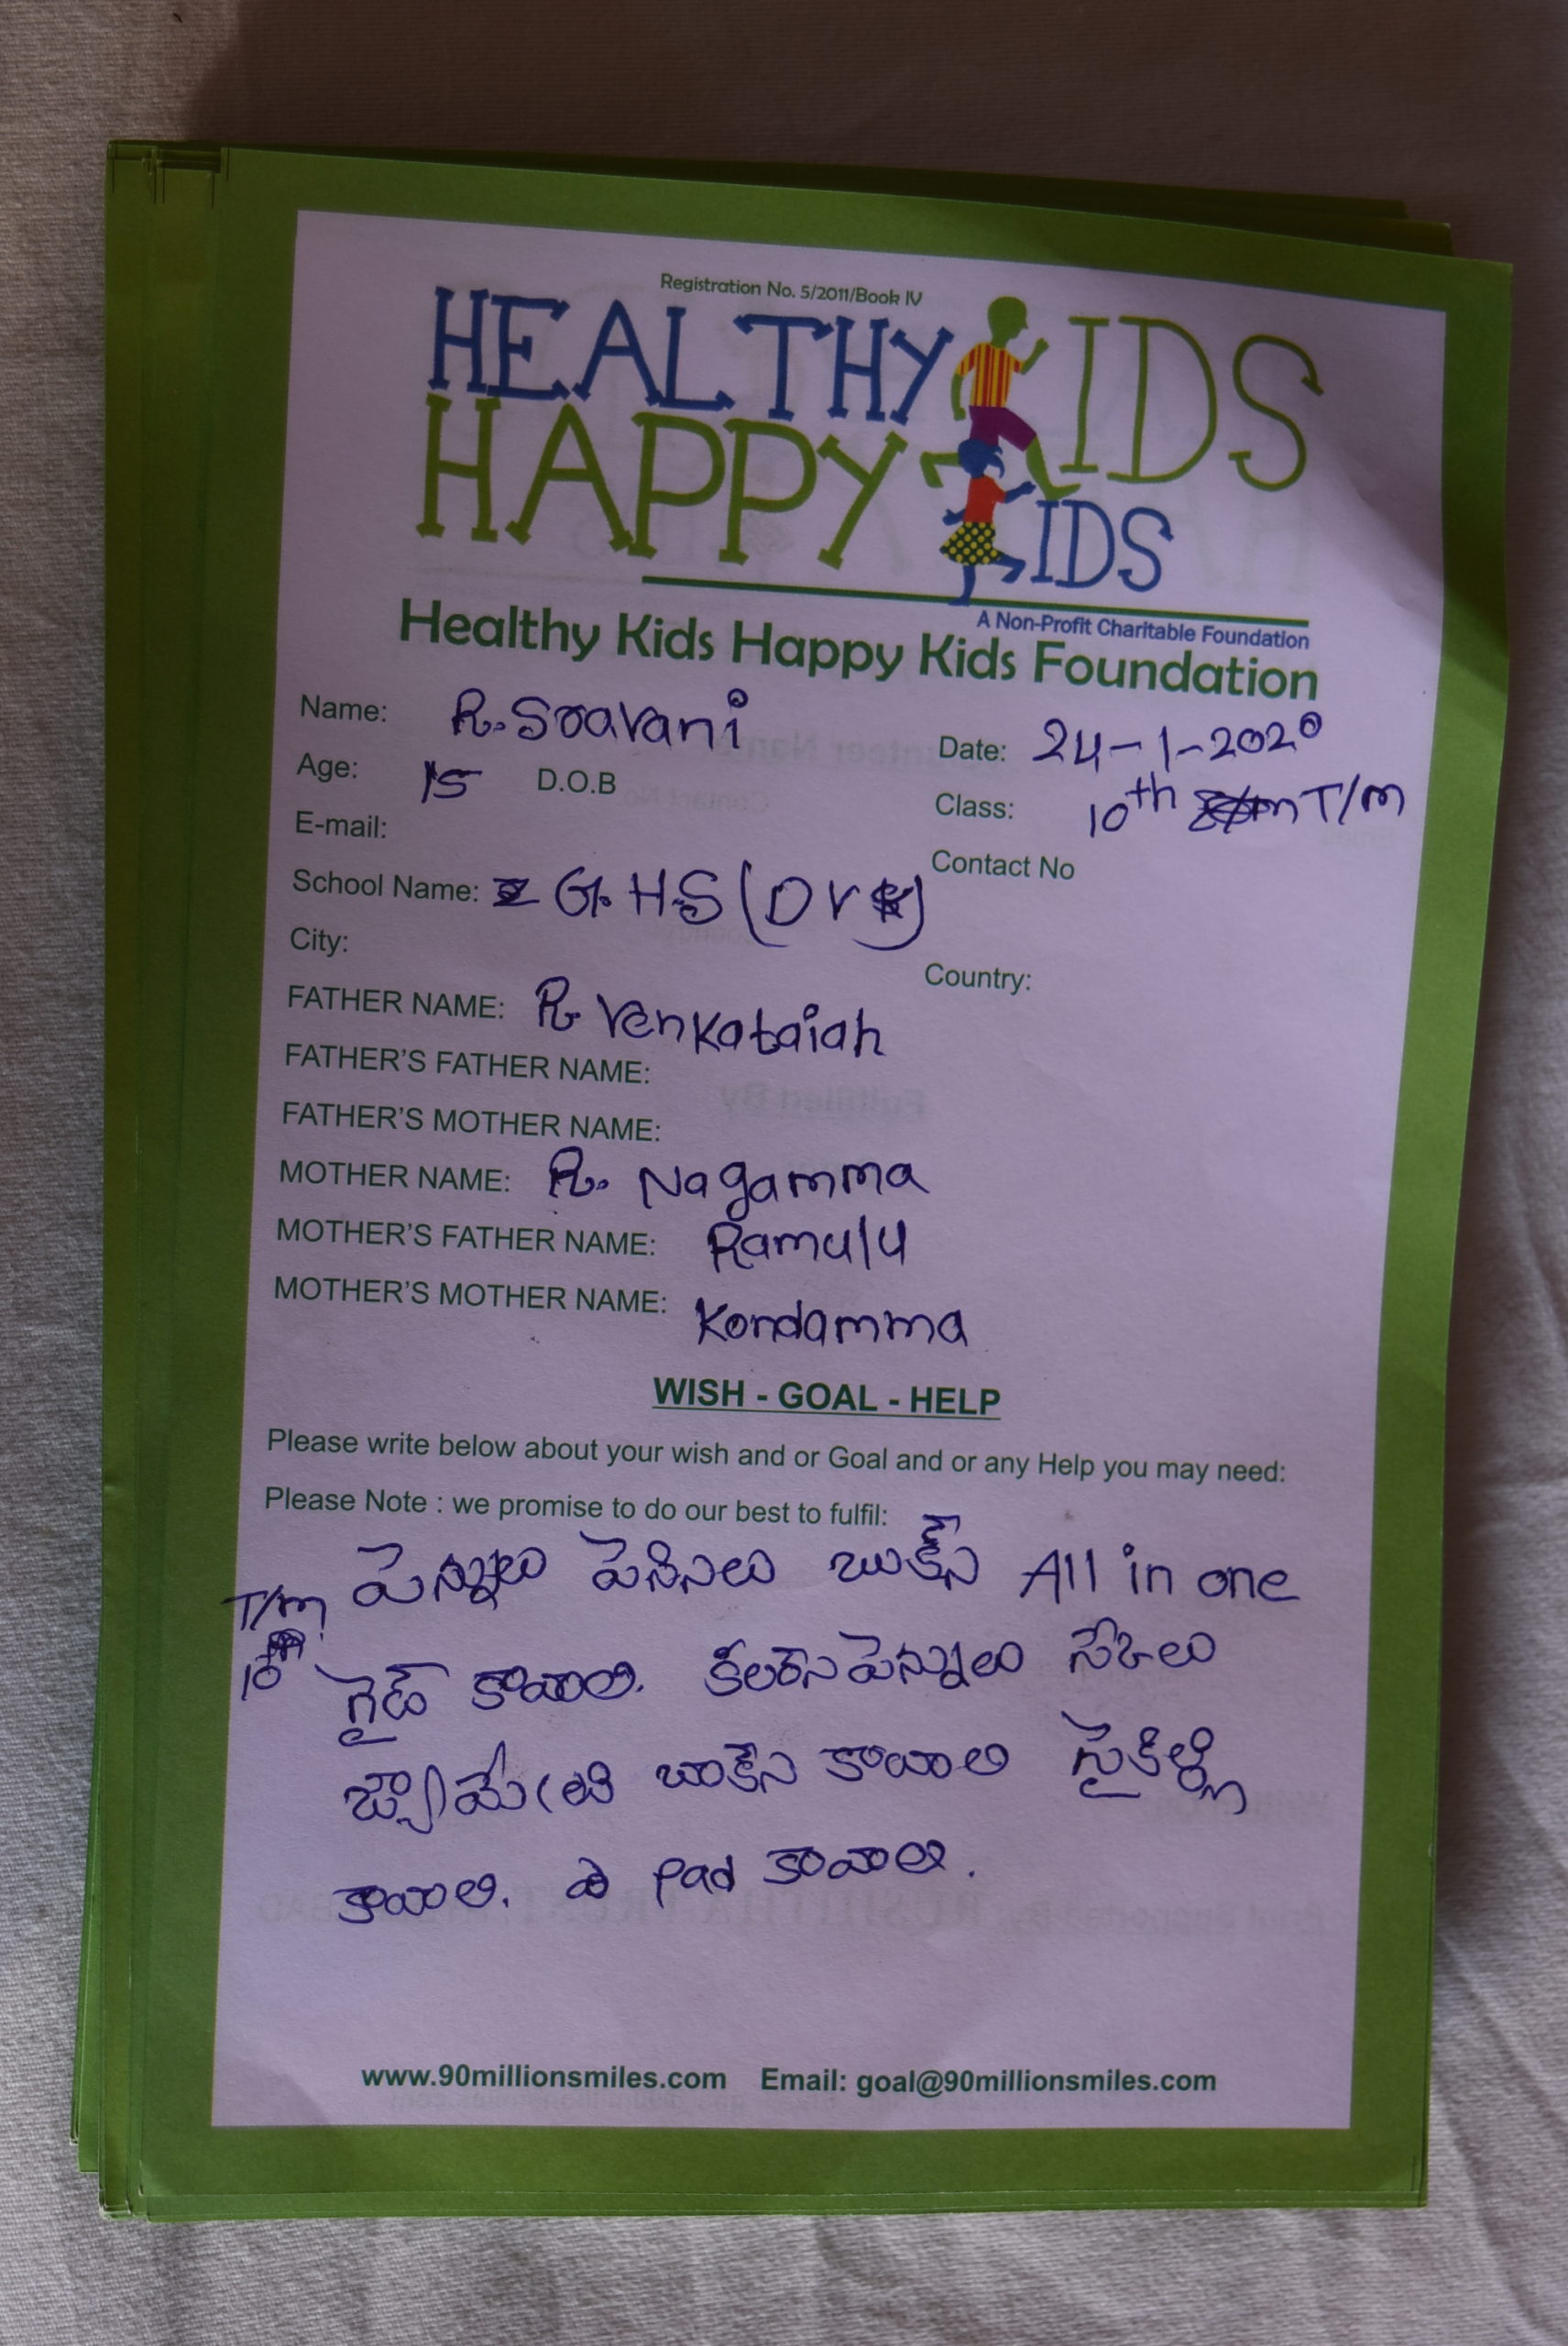 Registration No. 5/2011/Book IV
HEALTHY KIDS
HAPPY KIDS
A Non-Profit Charitable Foundation
Healthy Kids Happy Kids Foundation
Name: R. Sravani
Date: 24-1-2020
Age: 15 D.O.B
Class: 10th T/m
E-mail:
Contact No
School Name: G.H.S (DVK)
City:
Country:
FATHER NAME: R. Venkataiah
FATHER'S FATHER NAME:
FATHER'S MOTHER NAME:
MOTHER NAME: R. Nagamma
MOTHER'S FATHER NAME: Ramulu
MOTHER'S MOTHER NAME: Kondamma
WISH - GOAL - HELP
Please write below about your wish and or Goal and or any Help you may need:
Please Note : we promise to do our best to fulfil:
పెన్నులు పెనిసిలు బుక్స్ All in one
T/m
10th గైడ్ కావాలి. కలర్స్ పెన్నులు
బాక్స్ కావాలి
కావాలి. Pad కావాలి.
www.90millionsmiles.com Email: goal@90millionsmiles.com